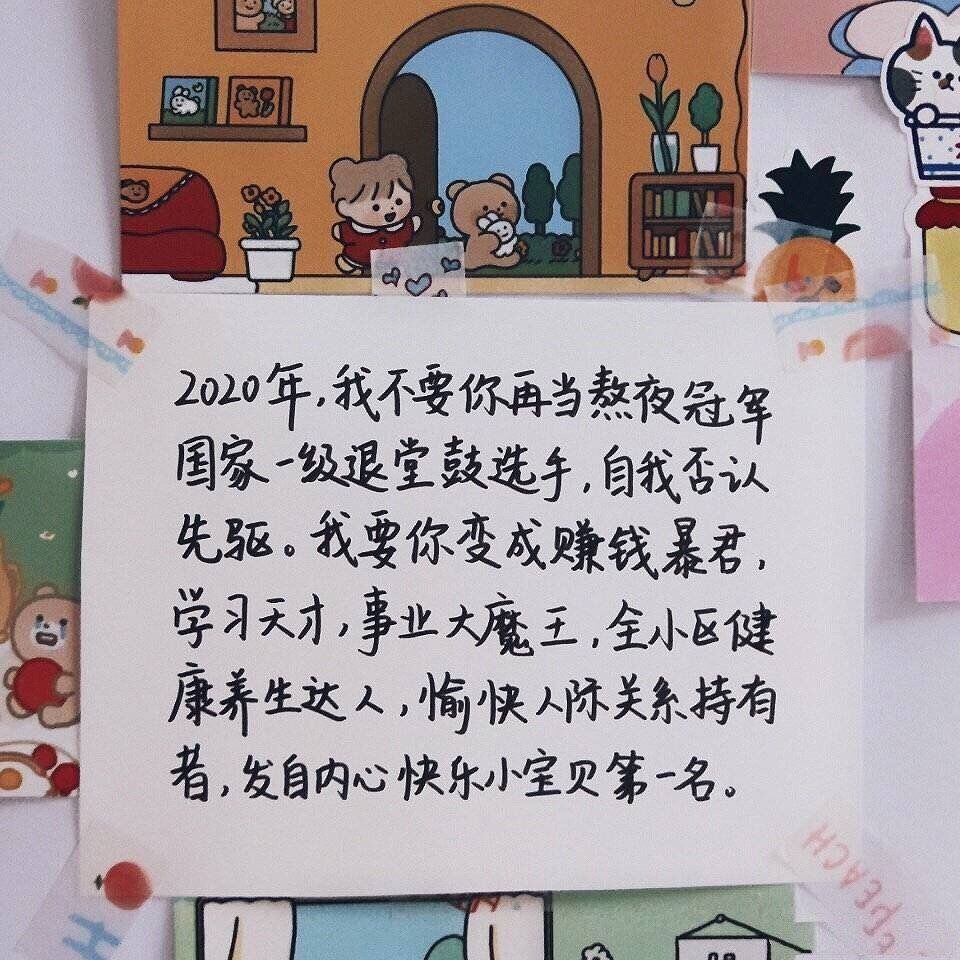 2020年,我不要你再当熬夜冠军
国家一级退堂鼓选手,自我否认
先驱。我要你变成赚钱暴君,
学习天才,事业大魔王,全小区健
康养生达人,愉快人际关系持有
者,发自内心快乐小宝贝第一名。
PEACH